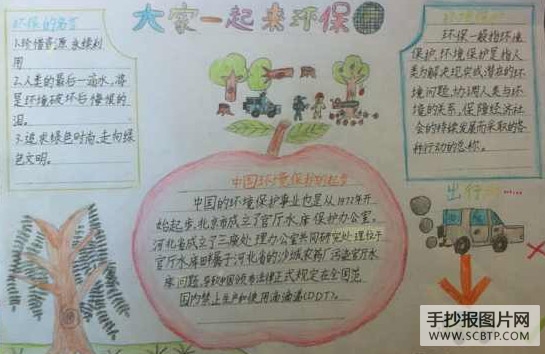 大家一起来环保
环保的名言
1.珍惜资源 永续利
用
2.人类的最后一滴水,将
是环境破坏后悔恨的
泪。
3.追求绿色时尚,走向绿
色文明。
环保一般指环境
保护,环境保护是指人
类为解决现实或潜在的环
境问题,协调人类与环
境的关系,保障经济社
会的持续发展而采取的各
种行动的总称。
中国环境保护的起步
中国的环境保护事业也是从1972年开
始起步,北京市成立了官厅水库保护办公室,
河北省成立了三废处理办公室共同研究处理位于
官厅水库畔属于河北省的沙城农药厂污染官厅水
库问题,
正式规定在全国范
围内禁止生产和使用滴滴涕(DDT)。
出行
手抄报图片网
WWW.SCBTP.COM